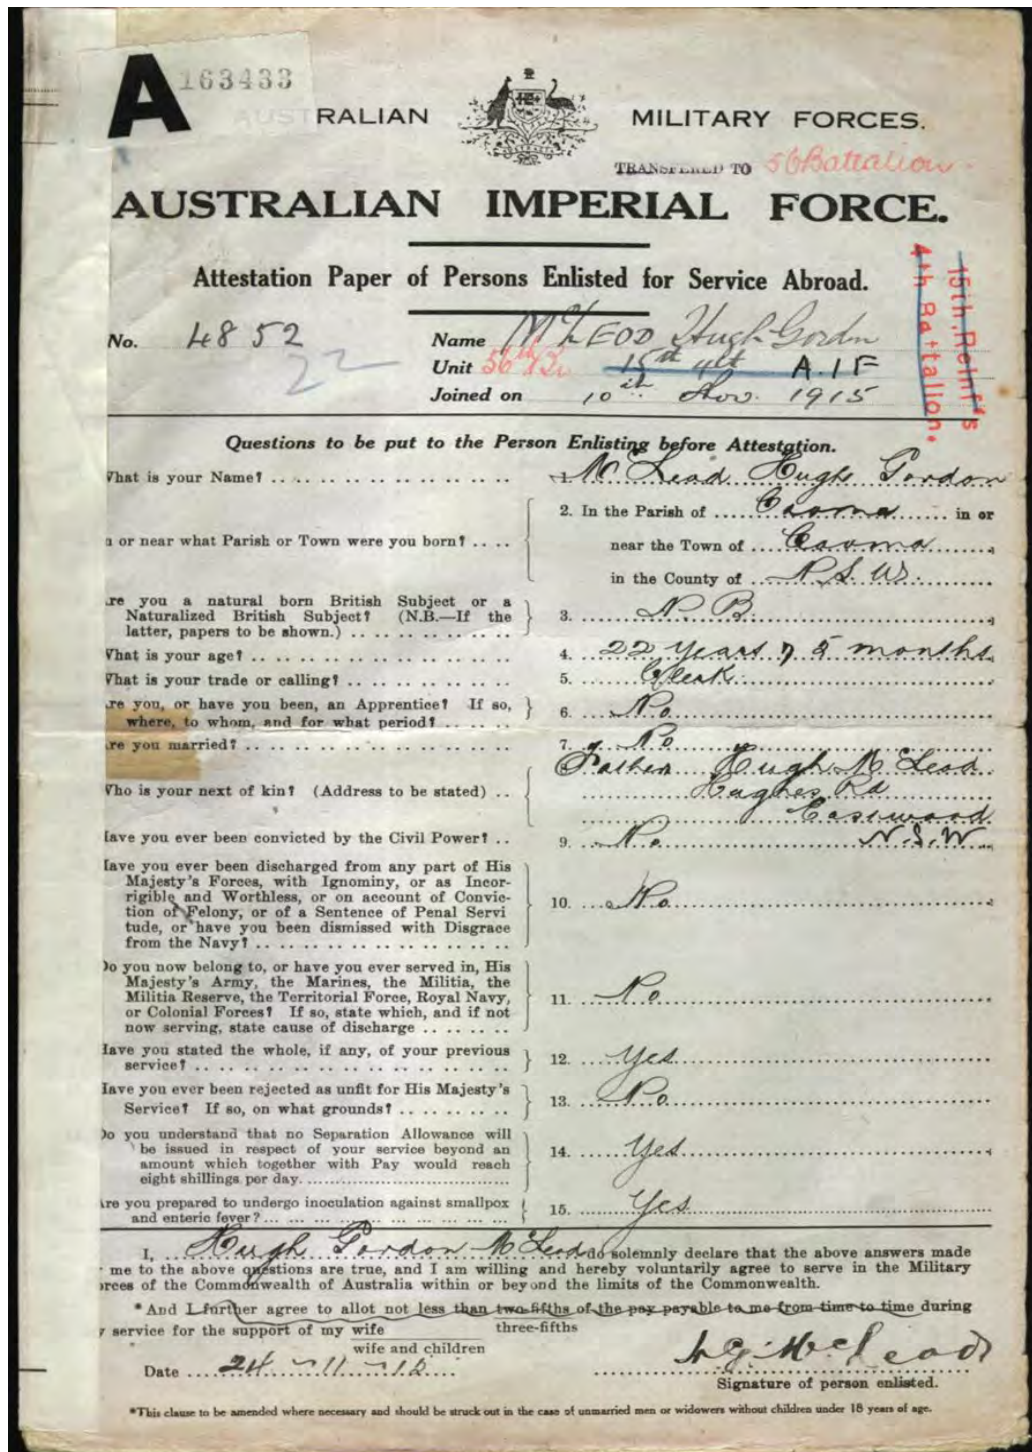 A 163433
AUSTRALIAN MILITARY FORCES.
TRANSFERED TO 56 Battalion
AUSTRALIAN IMPERIAL FORCE.
15th Reinf's
4th Battalion.
Attestation Paper of Persons Enlisted for Service Abroad.
No. 4852 Name McLEOD Hugh Gordon
22
Unit 56th Bn A.I.F
Joined on 10th Nov. 1915
Questions to be put to the Person Enlisting before Attestation.
What is your Name? 1. McLeod Hugh Gordon
2. In the Parish of Cooma in or
n or near what Parish or Town were you born? near the Town of Cooma
in the County of N.S.W.
re you a natural born British Subject or a
Naturalized British Subject? (N.B.—If the 3. N.B.
latter, papers to be shown.)
What is your age? 4. 22 years 5 months
What is your trade or calling? 5. Clerk
re you, or have you been, an Apprentice? If so, 6. No
where, to whom, and for what period?
re you married? 7. No
Father Hugh McLeod
Who is your next of kin? (Address to be stated) Hughes Rd
Eastwood
Have you ever been convicted by the Civil Power? 9. No N.S.W.
Have you ever been discharged from any part of His
Majesty's Forces, with Ignominy, or as Incor-
rigible and Worthless, or on account of Convic- 10. No
tion of Felony, or of a Sentence of Penal Servi
tude, or have you been dismissed with Disgrace
from the Navy?
Do you now belong to, or have you ever served in, His
Majesty's Army, the Marines, the Militia, the
Militia Reserve, the Territorial Force, Royal Navy, 11. No
or Colonial Forces? If so, state which, and if not
now serving, state cause of discharge
Have you stated the whole, if any, of your previous 12. Yes
service?
Have you ever been rejected as unfit for His Majesty's 13. No
Service? If so, on what grounds?
Do you understand that no Separation Allowance will
be issued in respect of your service beyond an 14. Yes
amount which together with Pay would reach
eight shillings per day.
Are you prepared to undergo inoculation against smallpox 15. Yes
and enteric fever?
I, Hugh Gordon McLeod do solemnly declare that the above answers made
me to the above questions are true, and I am willing and hereby voluntarily agree to serve in the Military
orces of the Commonwealth of Australia within or beyond the limits of the Commonwealth.
*And I further agree to allot not less than two-fifths of the pay payable to me from time to time during
three-fifths
y service for the support of my wife
wife and children
Date 24-11-15 H G McLeod
Signature of person enlisted.
*This clause to be amended where necessary and should be struck out in the case of unmarried men or widowers without children under 18 years of age.